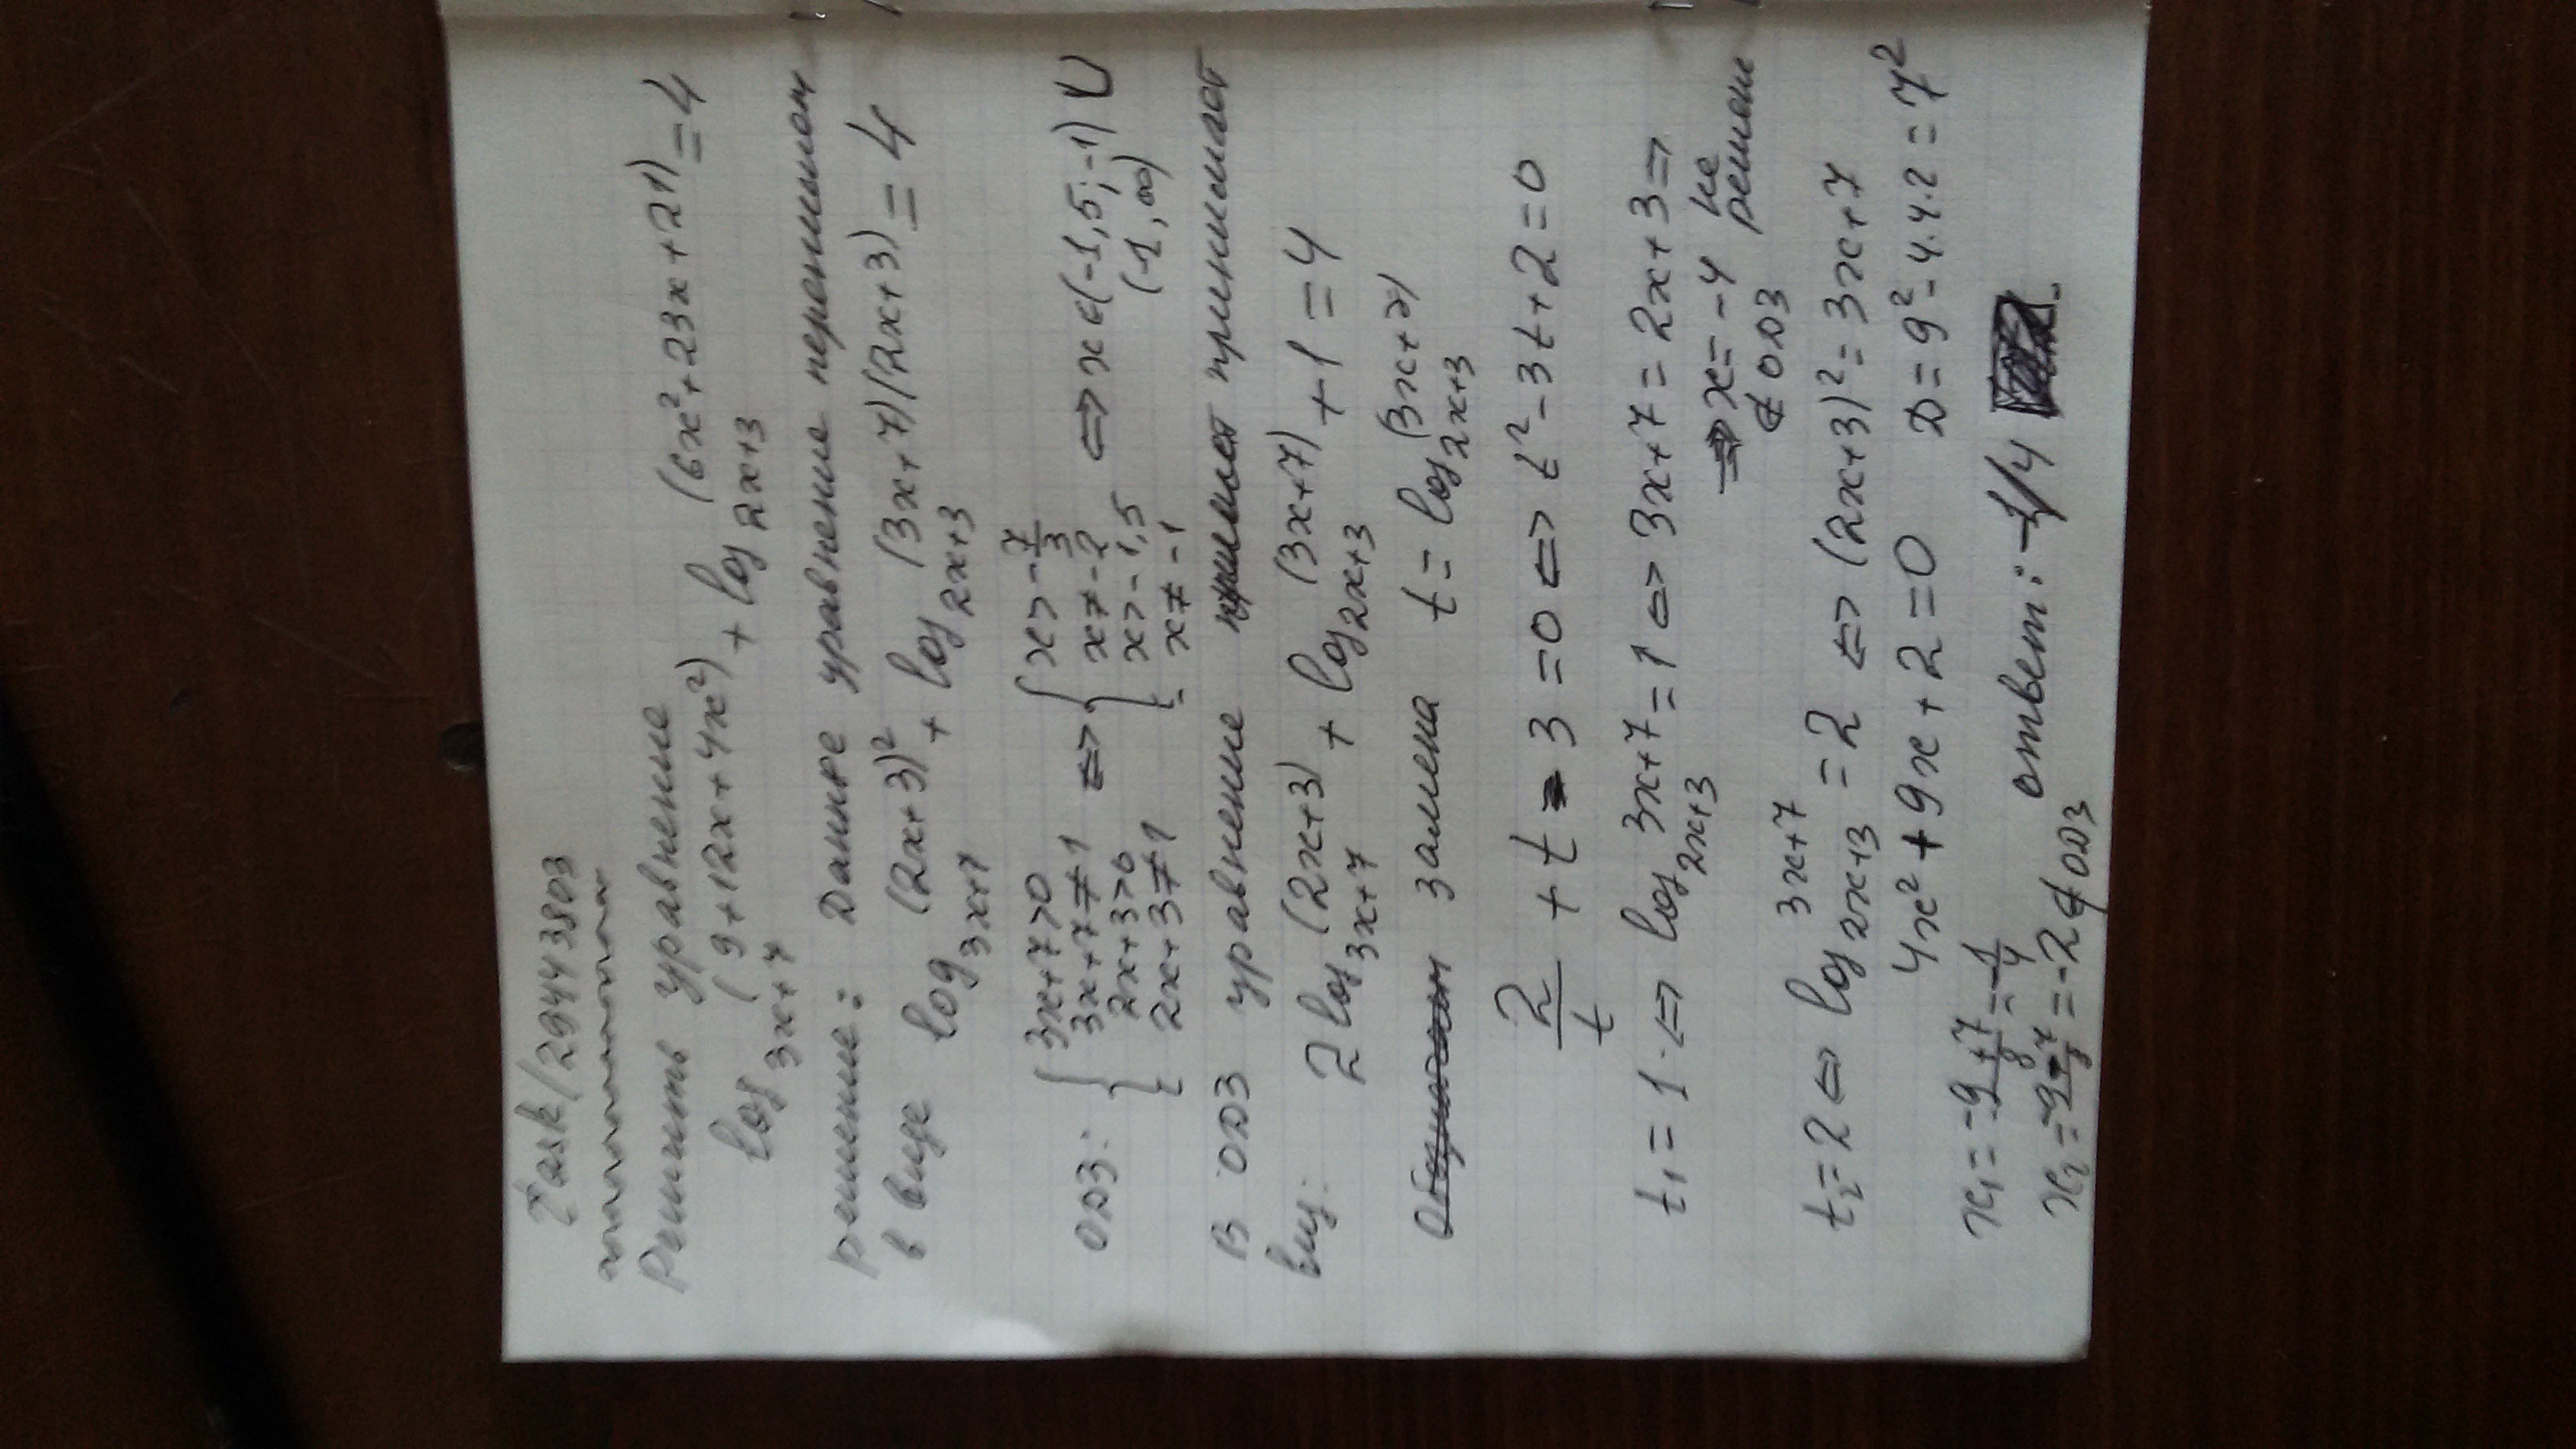 Task/29443803
Решить уравнение
log₃ₓ₊₇(9+12x+4x²) + log₂ₓ₊₃(6x²+23x+21) = 4
решение: Данное уравнение перепишем
в виде log₃ₓ₊₇(2x+3)² + log₂ₓ₊₃(3x+7)(2x+3) = 4
ОДЗ: { 3x+7>0 ⇔ { x>-7/3
3x+7≠1 x≠-2 ⇔ x∈(-1,5;-1) ∪
2x+3>0 x>-1,5 (-1,∞)
2x+3≠1 x≠-1
В ОДЗ уравнение принимает
вид: 2log₃ₓ₊₇(2x+3) + log₂ₓ₊₃(3x+7) + 1 = 4
замена t = log₂ₓ₊₃(3x+7)
2/t + t - 3 = 0 ⇔ t² - 3t + 2 = 0
t₁ = 1 ⇔ log₂ₓ₊₃ 3x+7 = 1 ⇔ 3x+7 = 2x+3 ⇒
⇒ x = -4 не
∉ ОДЗ решение
t₂ = 2 ⇔ log₂ₓ₊₃ 3x+7 = 2 ⇔ (2x+3)² = 3x+7
4x² + 9x + 2 = 0 D = 9² - 4·4·2 = 7²
x₁ = (-9+7)/8 = -1/4
x₂ = (-9-7)/8 = -2 ∉ ОДЗ ответ: -1/4